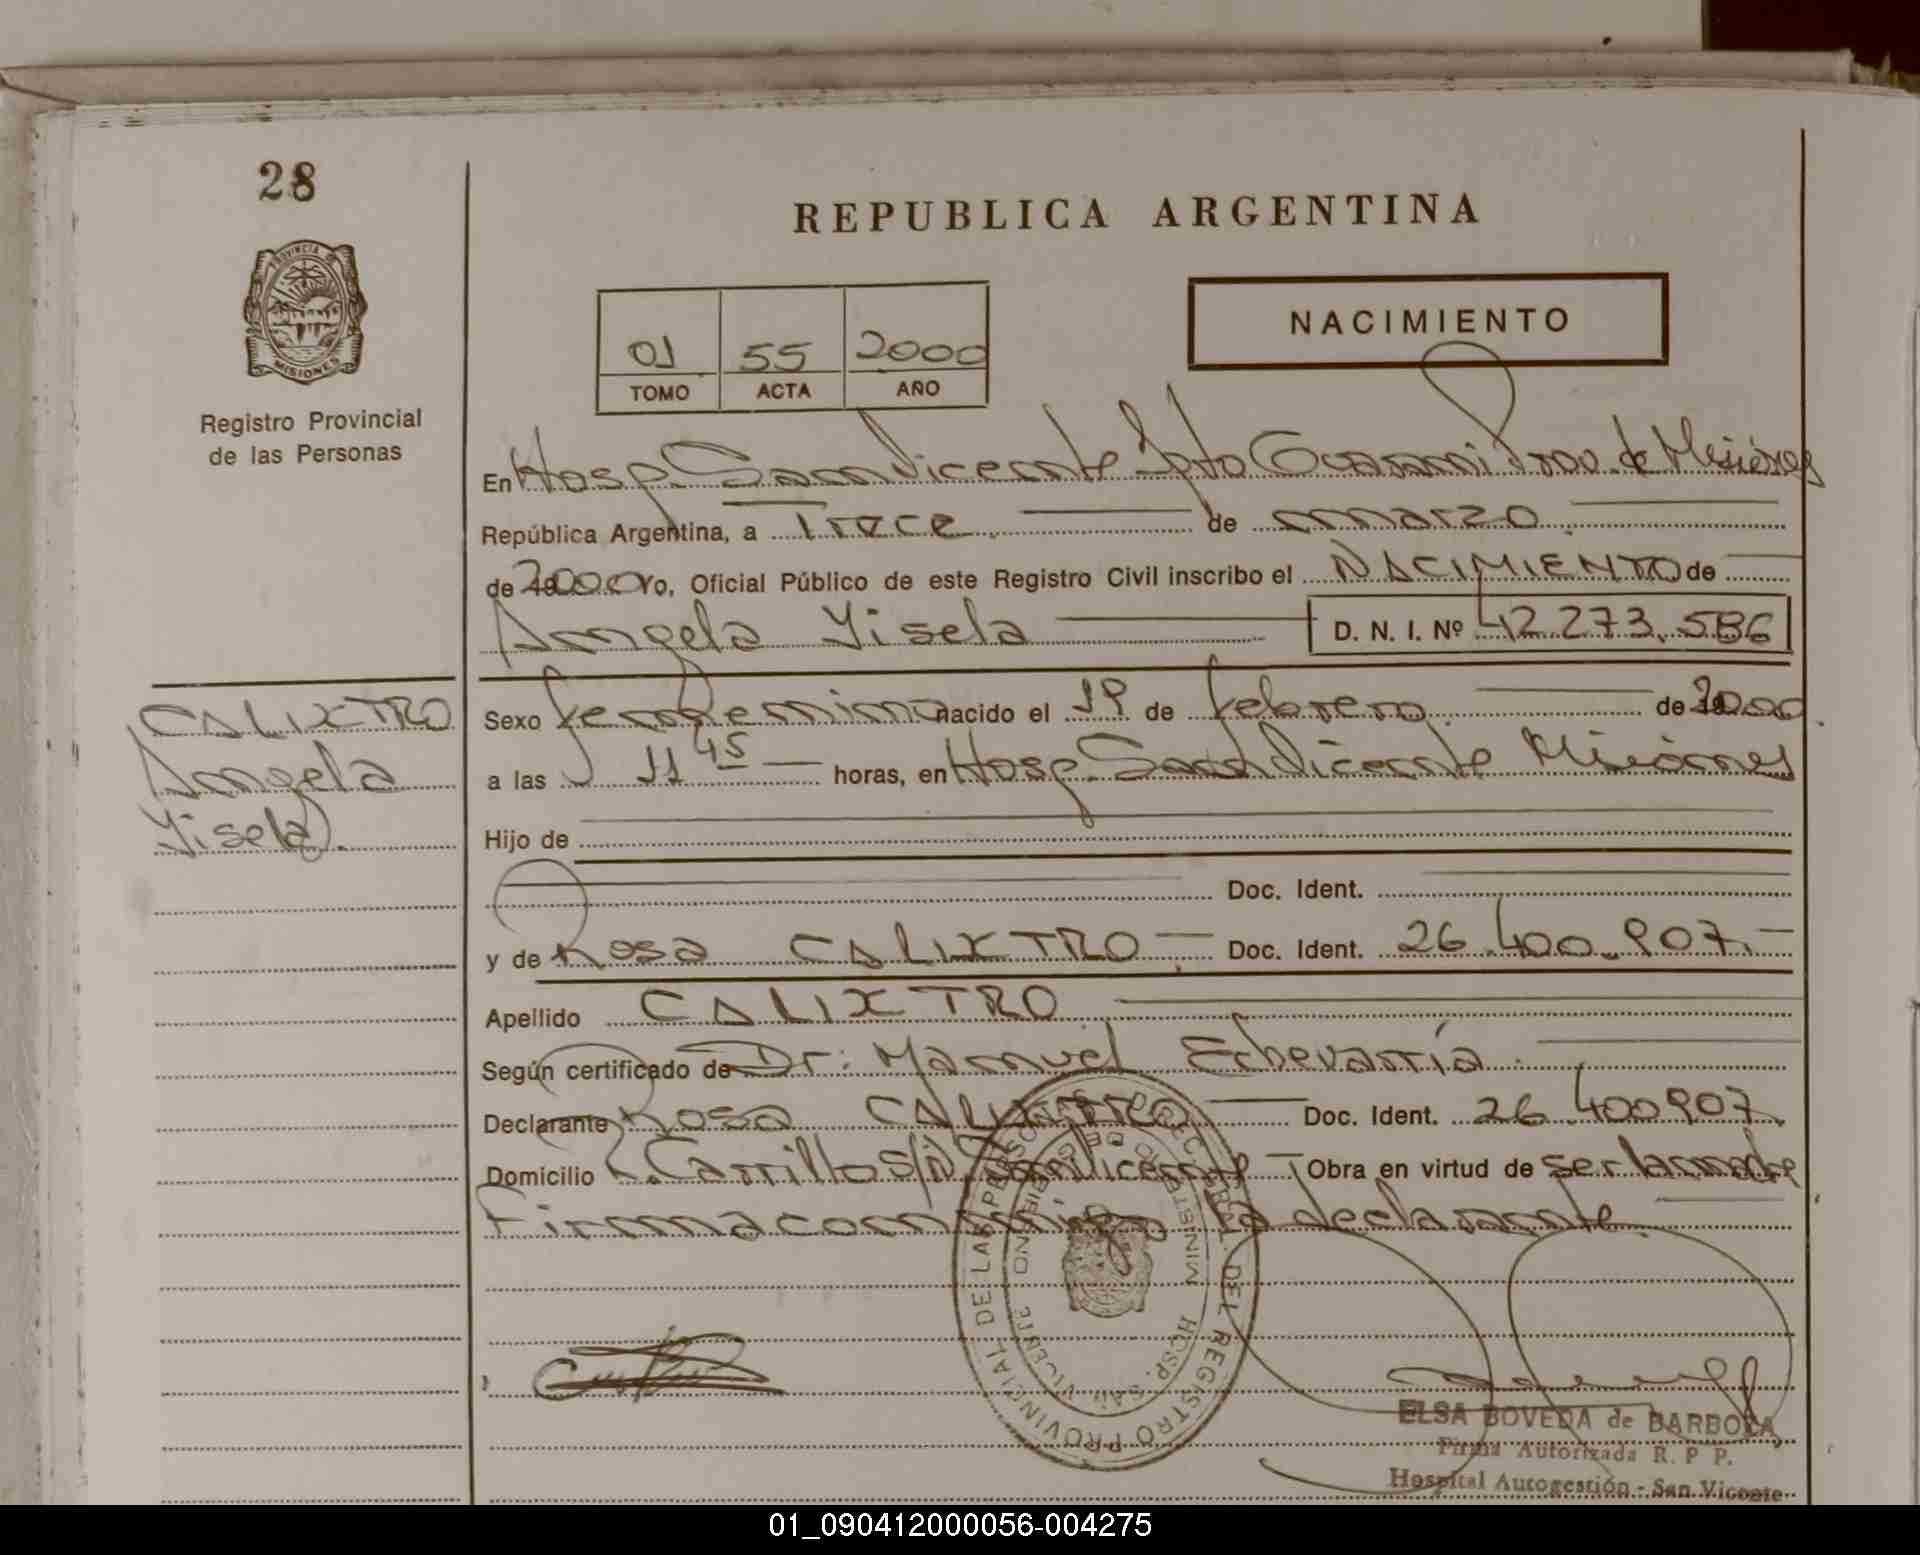 28
REPUBLICA ARGENTINA
PROVINCIA DE
MISIONES
Registro Provincial
de las Personas
01 55 2000
TOMO ACTA AÑO
NACIMIENTO
En Hosp. San Vicente Dpto Guaraní Prov. de Misiones
República Argentina, a Trece de marzo
de 2000 Yo, Oficial Público de este Registro Civil inscribo el NACIMIENTO de
Angela Yisela D. N. I. Nº 42.273.586
CALIXTRO
Angela
Yisela
Sexo femenino nacido el 19 de febrero de 2000
a las 11 45 horas, en Hosp. San Vicente Misiones
Hijo de
Doc. Ident.
y de Rosa CALIXTRO Doc. Ident. 26.400.907
Apellido CALIXTRO
Según certificado de Dr: Manuel Echevarría
Declarante Rosa CALIXTRO Doc. Ident. 26.400907
Domicilio R. Carrillo S/N San Vicente Obra en virtud de ser la madre
Firma conmigo la declarante
REGISTRO PROVINCIAL DE LAS PERSONAS
HOSP. SAN VICENTE
ELSA BOVEDA de BARBOZA
Firma Autorizada R. P P.
Hospital Autogestión - San Vicente
01_090412000056-004275